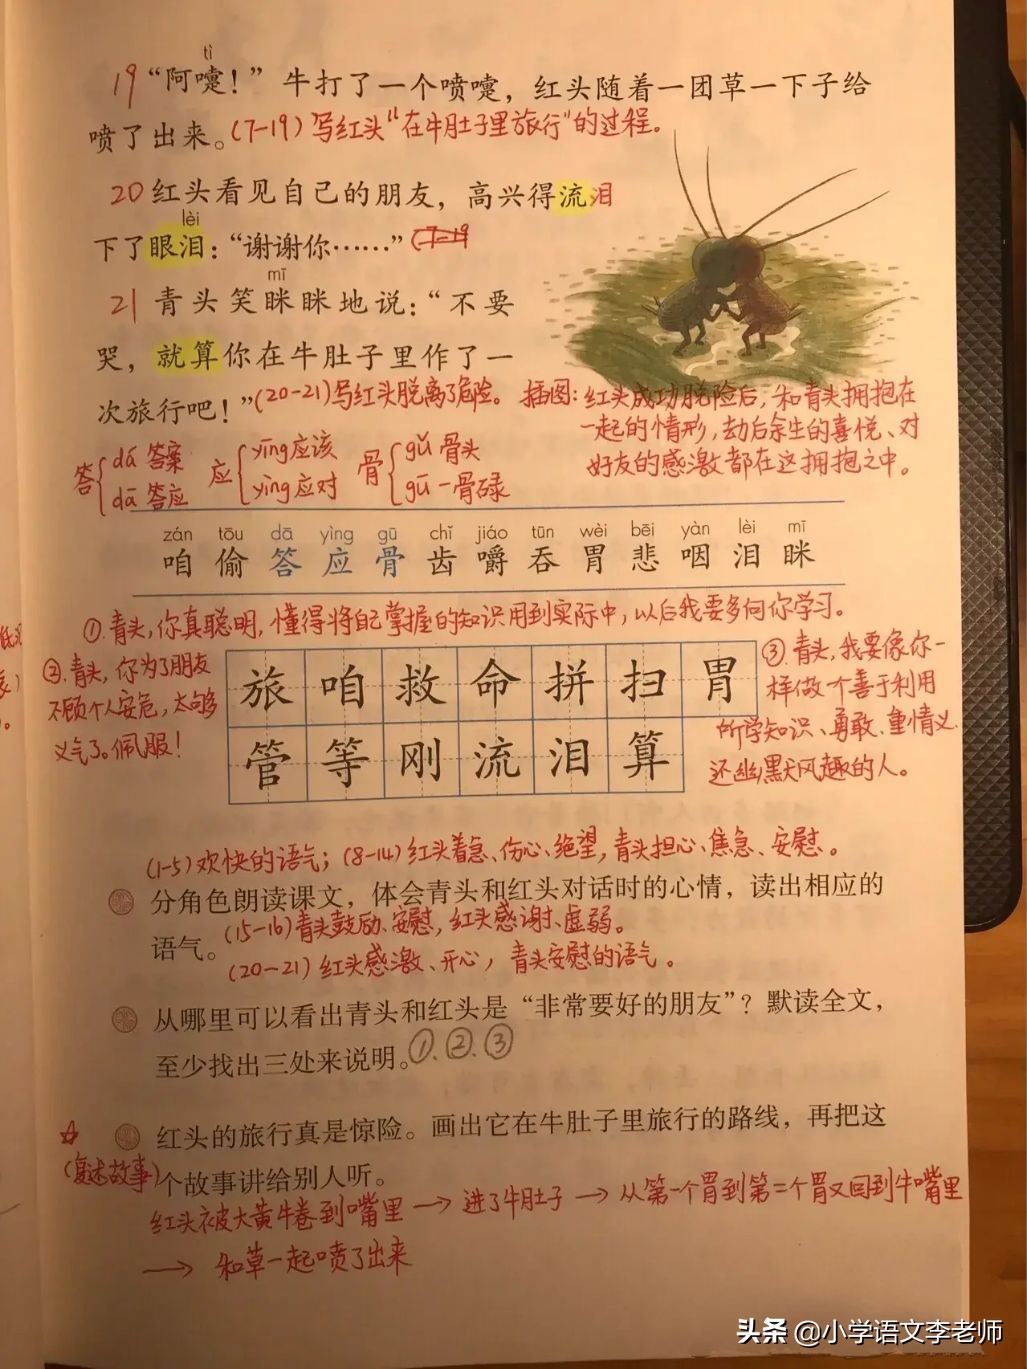 tì
19 “阿嚏！” 牛打了一个喷嚏，红头随着一团草一下子给
喷了出来。(7-19) 写红头“在牛肚子里旅行”的过程。
20 红头看见自己的朋友，高兴得流泪
lèi
下了眼泪：“谢谢你……” (7-19
mī
21 青头笑眯眯地说：“不要
哭，就算你在牛肚子里作了一
次旅行吧！”(20-21)写红头脱离了危险。
插图：红头成功脱险后，和青头拥抱在
一起的情形，劫后余生的喜悦、对
好友的感激都在这拥抱之中。
答 dá 答案 应 yīng 应该 骨 gǔ 骨头
dā 答应 yìng 应对 gū 一骨碌
zán tōu dā yìng gū chǐ jiáo tūn wèi bēi yàn lèi mī
咱 偷 答 应 骨 齿 嚼 吞 胃 悲 咽 泪 眯
①.青头，你真聪明，懂得将自己掌握的知识用到实际中，以后我要多向你学习。
②.青头，你为了朋友
不顾个人安危，太够
义气了。佩服！
旅 咱 救 命 拼 扫 胃
管 等 刚 流 泪 算
③.青头，我要像你一
样做一个善于利用
所学知识、勇敢、重情义
还幽默风趣的人。
(1-5) 欢快的语气；(8-14) 红头着急、伤心、绝望，青头担心、焦急、安慰。
分角色朗读课文，体会青头和红头对话时的心情，读出相应的
语气。(15-16)青头鼓励、安慰，红头感谢、虚弱。
(20-21) 红头感激、开心，青头安慰的语气。
从哪里可以看出青头和红头是“非常要好的朋友”？默读全文，
至少找出三处来说明。①.②.③
☆ 红头的旅行真是惊险。画出它在牛肚子里旅行的路线，再把这
(复述故事)个故事讲给别人听。
红头被大黄牛卷到嘴里 → 进了牛肚子 → 从第一个胃到第二个胃又回到牛嘴里
→ 和草一起喷了出来
头条 @小学语文李老师